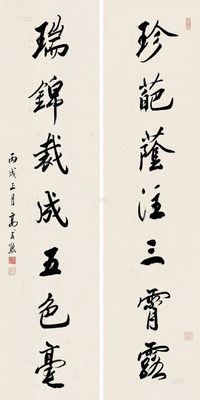 珍葩蔭注三霄露
瑞錦裁成五色毫
丙戌正月高式熊